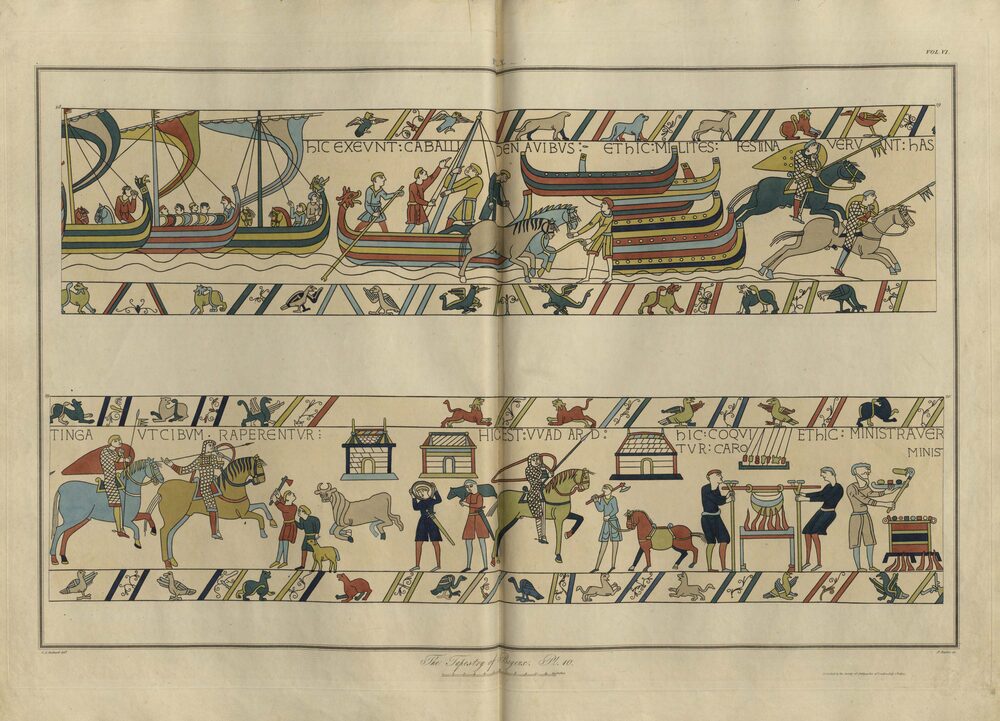 VOL. VI.
hIC EXEVNT: CABALLI DENAVIBVS:- ETHIC: MILITES: FESTINA VERV NT: hAS
TINGA VTCIBVM: RAPERENTVR: HICEST: VVADARD: hIC: COQVI ETHIC: MINISTRAVER
TVR: CARO MINIS
The Tapestry of Bayeux: Pl. 10.